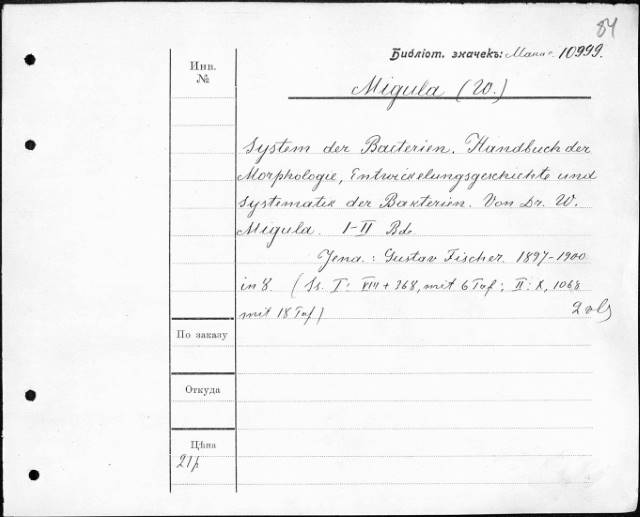 84
Библіот. значекъ: 10999.
Инв.
№
Migula (W.)
System der Bacterien. Handbuch der
Morphologie, Entwickelungsgeschichte und
Systematik der Bakterien. Von Dr. W.
Migula. I-II Bde
Jena: Gustav Fischer 1897-1900
in 8. (Ss. I: VIII + 368, mit 6 Taf; II: X, 1068
mit 18 Taf)
2 vls
По заказу
Откуда
Цѣна
21р